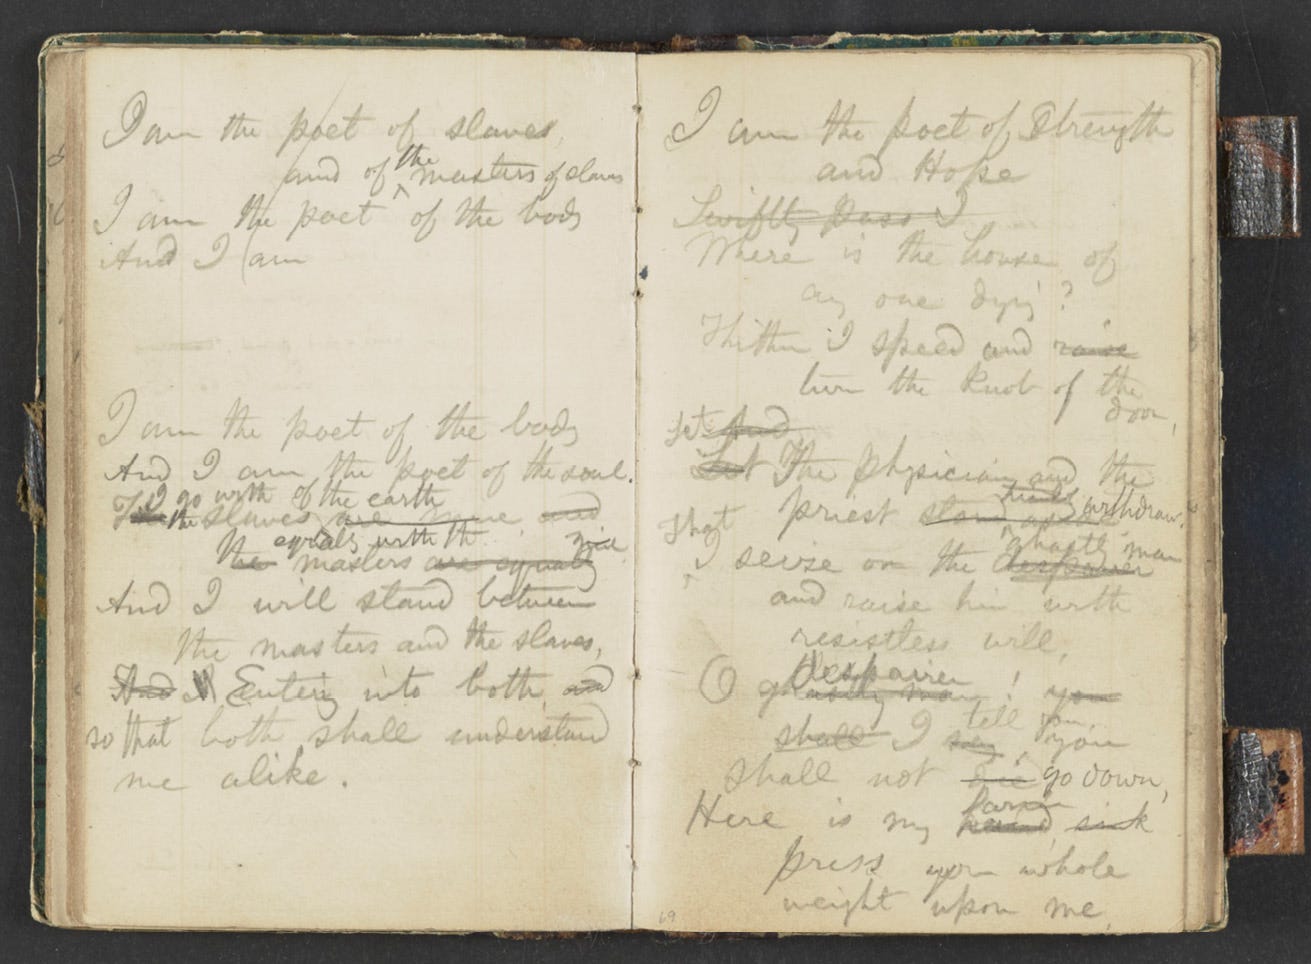 I am the poet of slaves,
and of the masters of slaves
I am the poet of the body
And I am
I am the poet of the body
And I am the poet of the soul.
The I go with the slaves of the earth are mine and
The equally with the masters are equally mine
And I will stand between
the masters and the slaves,
And I Entering into both, and
so that both shall understand
me alike.
I am the poet of Strength
and Hope
Swiftly pass I
Where is the house of
any one dying?
Thither I speed and raise
turn the knob of the
door,
let And
Let The physician and the
priest stand aside withdraw,
That I seize on the ghastly man despairer
and raise him with
resistless will;
O ghastly man despairer! you
shall I say tell you, you
shall not die go down,
Here is my hand arm, sink
press your whole
weight upon me,
69